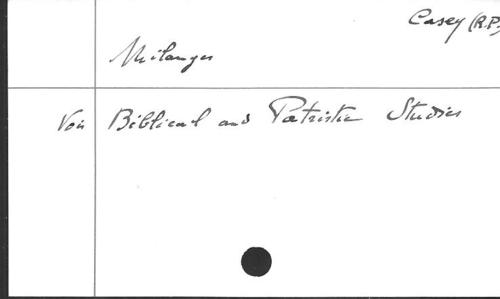 Casey (R.P.)
Mélanges
Voir Biblical and Patristic Studies